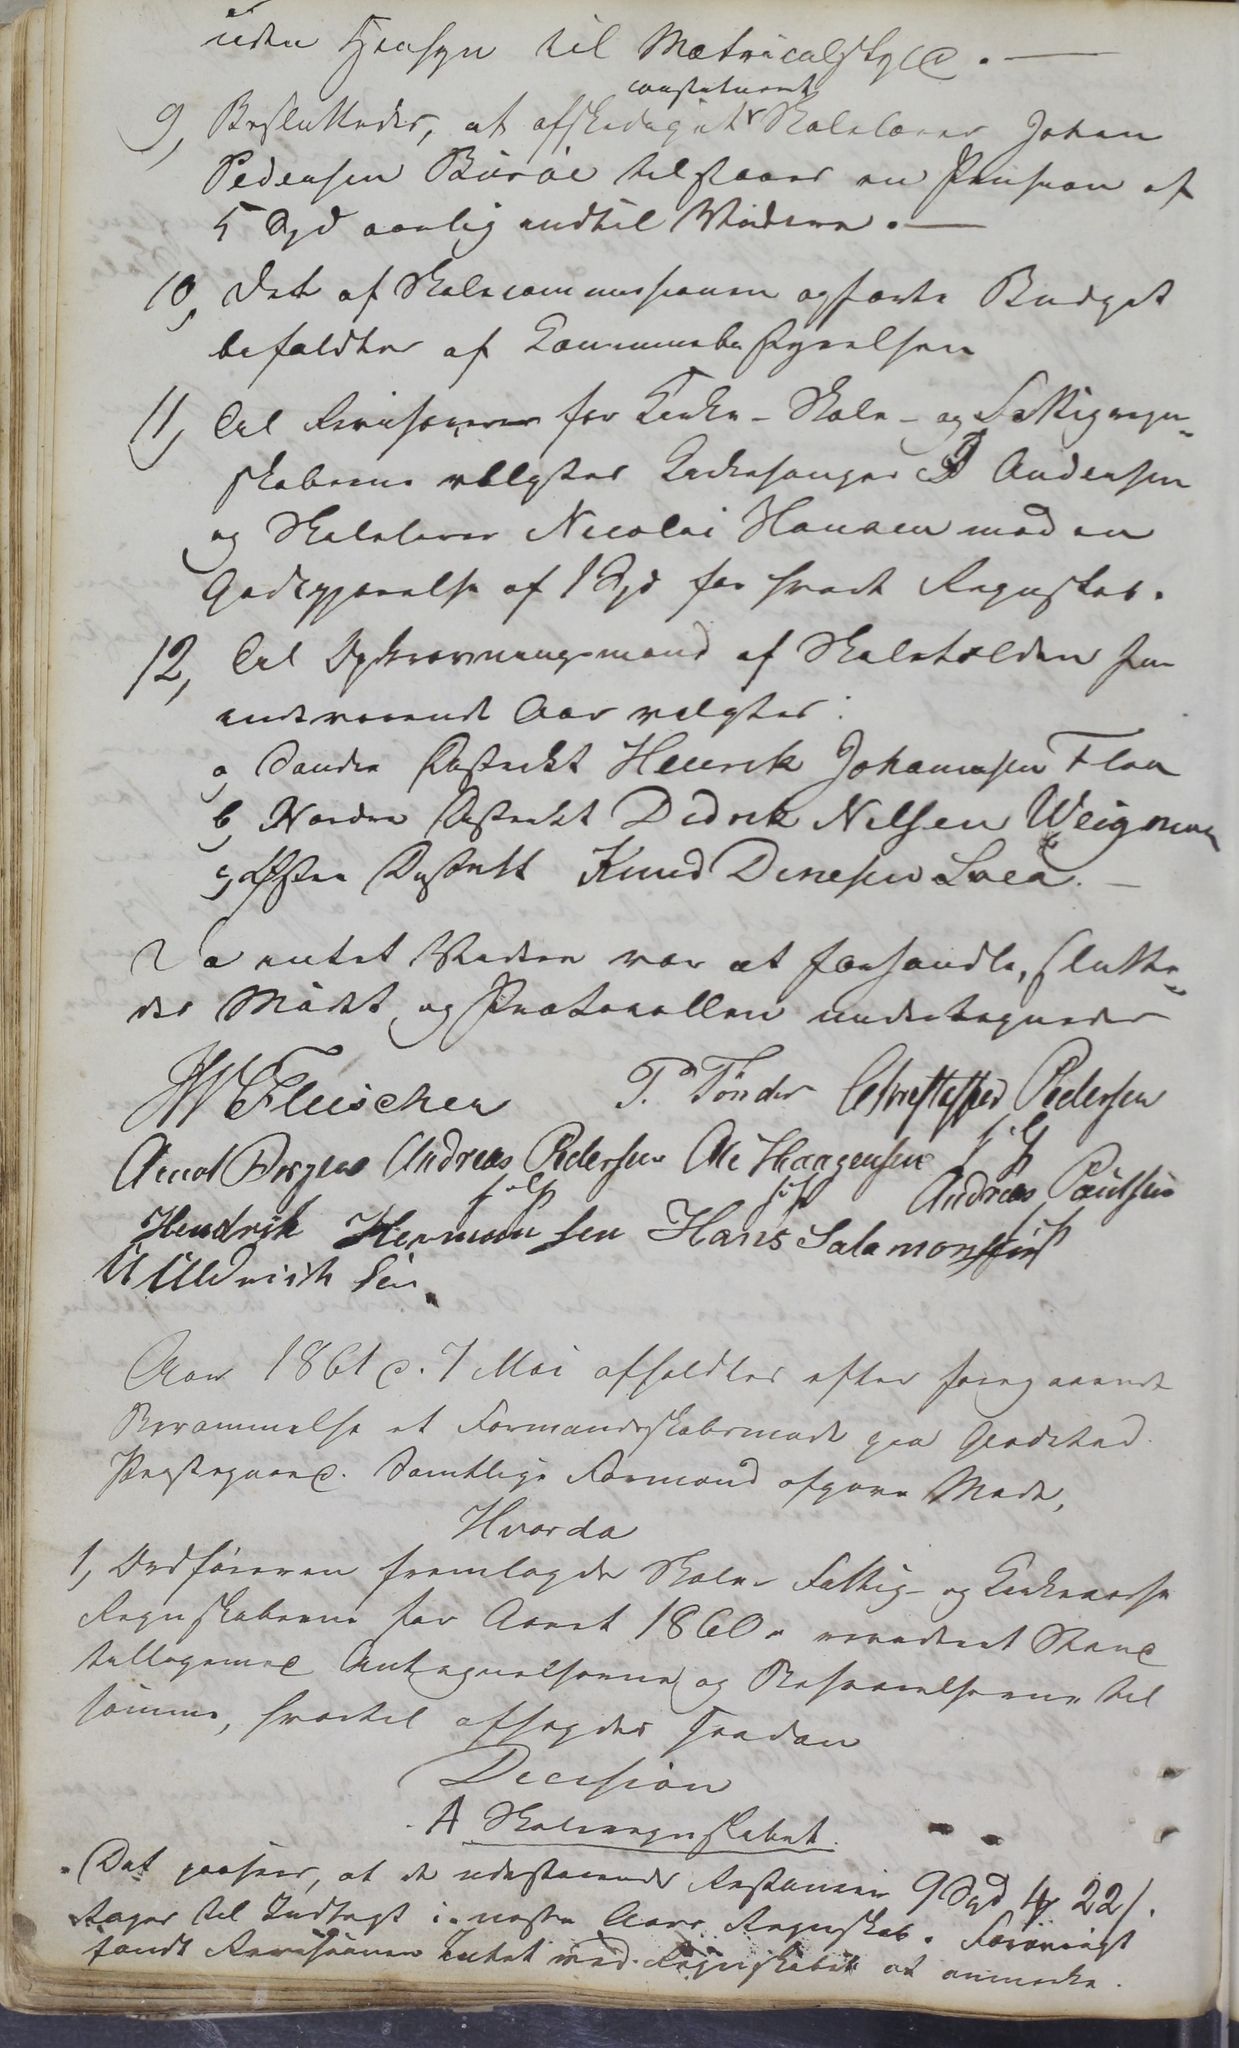 uden Hensyn til Matriculskyld. —
constitueret
9, Besluttedes, at afskediget Skolelærer Johan
Pedersen Buröe tilstaaes en Pension af
5 Spd aarlig indtil Videre. —
10, Det af Skolecommissionen opførte Budget
befaldtes af Communebestyrelsen
11, Til Revisorer for Kirke- Skole- og Fattigregn-
skaberne valgtes Kirkesanger Andersen
og Skolelærer Nicolai Hansen mod en
Godtgjørelse af 1 Spd for hvert Regnskab.
12, Til Opkrævningsmænd af Skoletolden for
indeværende Aar valgtes:
a, Søndre Distrikt Henrik Johannesen Floa
b, Nordre Distrikt Didrik Nilsen
c, Østre Distrikt Knud Denesen
Da intet Videre var at forhandle, slutte-
des Mödet og Protocollen undertegnedes
JW Fleischer P. Tönder Christoffer Pedersen
Arnot Andreas Pedersen Ole Haagensen
Andreas Paulsen
Hendrik Hermansen Hans Salamonsen
U Uldrichsen
Aar 1861 d. 7 Mai afholdtes efter foregaaende
Berammelse et Formandskabsmøde paa Gjedsted
Prestegaard. Samtlige Formænd afgave Møde,
Hvorda
1, Ordföreren fremlagde Skole- Fattig- og Kirke
Regnskaberne for Aaret 1860 i revideret Stand
tilligemed Antegnelserne og Besvarelserne til
samme, hvortil afsagdes saadan
Decision
A Skoleregnskabet.
Det paasees, at de udestaaende Restancer 9 Spd 4 22 s.
tages til Indtægt i næste Aars Regnskab. Forøvrigt
fandt Revisionen Intet ved Regnskabet at anmerke.